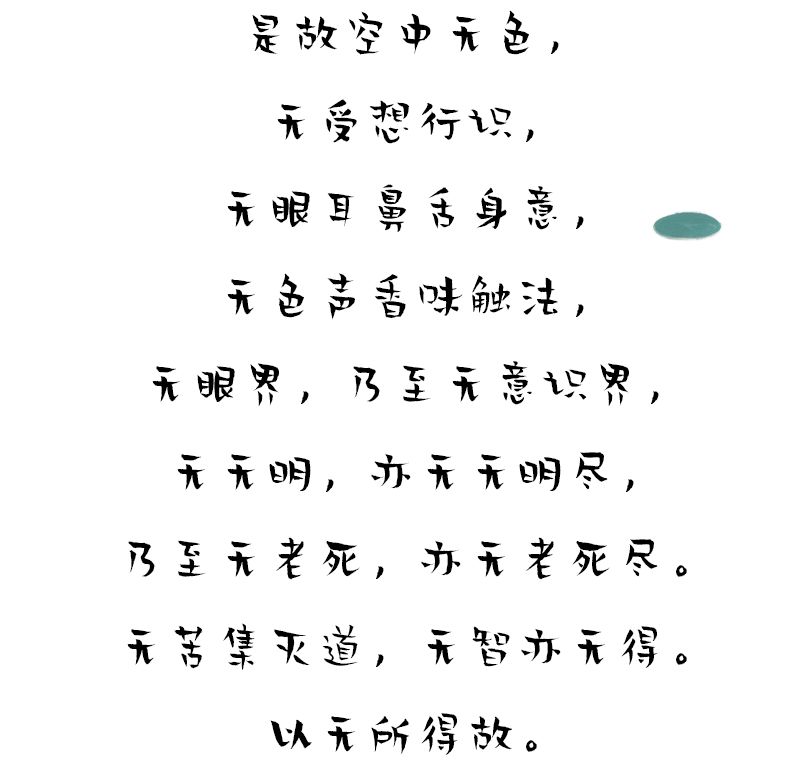 是故空中无色，
无受想行识，
无眼耳鼻舌身意，
无色声香味触法，
无眼界，乃至无意识界，
无无明，亦无无明尽，
乃至无老死，亦无老死尽。
无苦集灭道，无智亦无得。
以无所得故。